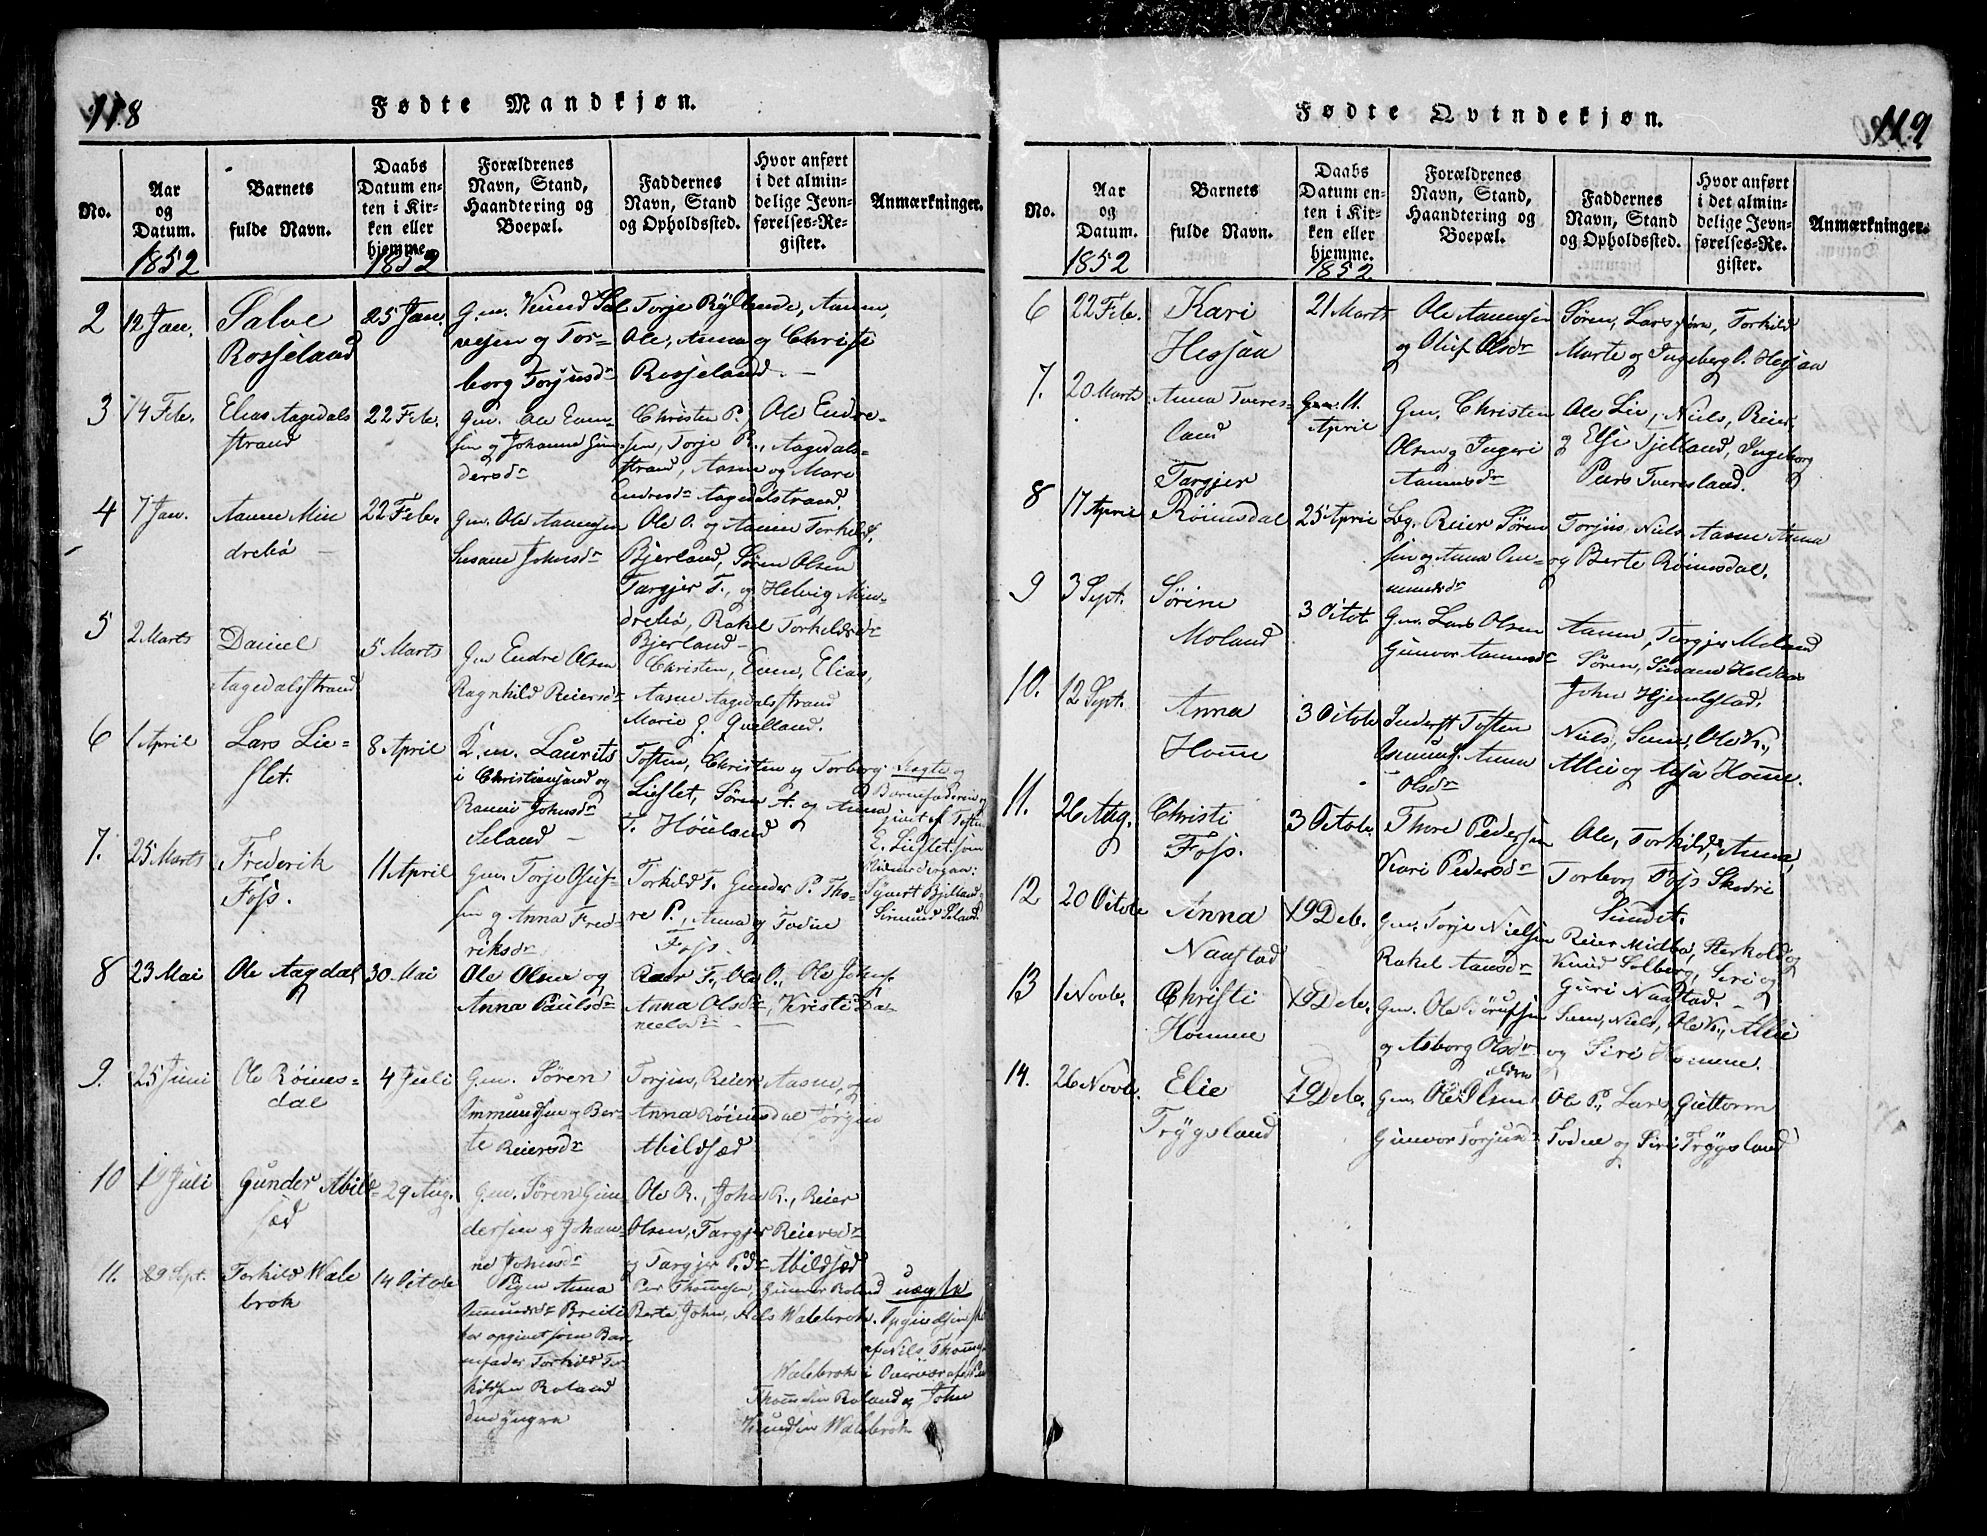 118
Fødte Mandkjøn.
No.
Aar og Datum.
Barnets fulde Navn.
Daabs Datum enten i Kirken eller hjemme.
Forældrenes Navn, Stand, Haandtering og Boepæl.
Faddernes Navn, Stand og Opholdssted.
Hvor anført i det almindelige Jevnførelses-Register.
Anmærkninger.
1852
1852
2
12 Jan.
Salve
Rosseland
25 Jan.
Gm. Knud Sal
vesen og Tor-
borg Torjusdr
Torje Rÿsland, Aanen,
Ole, Anna og Christi
Rosseland. —
3
14 Feb.
Elias Aagedals
strand
22 Feb.
Gm. Ole Even-
sen og Johanne Gun-
dersdr
Christen P. Ole Endre-
sen, Torje R., Aagedals-
strand, Aasne og Mari
Endresdr Aagedalstrand.
4
7 Jan.
Aanen Min
drebö —
22 Feb.
Gm. Ole Aanensen
Susane Johnsdr
Ole O. og Aanen Torkilds.
Bjerland, Søren Olsen
Targjer T., og Helvig Min-
drebø, Rakel Torkildsdr
Bjerland —
5
2 Marts
Daniel
Aagedalsstrand
5 Marts
Gm Endre Olsen
Ragnhild Reiersdr
Christen, Even, Elias,
Aasne Aagedalsstrand
Marie G. Qvelland.
6
1 April
Lars Lie-
flet.
8 April
K. m. Laurits
i Christiansand og
Ranni Johnsdr
Seland —
Tosten, Christen og Torborg
Lieflet, Søren A. og Anna
T. Höiland
Uægte og
Barnefaderen op
givet af Tosten
E. Lieflet som
Sÿvert Bjelland
7.
25 Marts
Frederik
Foss.
11 April
Gm. Torje Oluf-
sen og Anna Fred-
riksdr
Torkild T. Gunder P. Tho-
re P., Anna og Todne
Foss.
8
23 Mai
Ole Aagdal
30 Mai
Ole Olsen og
Anna Paulsdr
Reier T., Ole O., Ole Johns.
Anna Olsdr, Kristi Da-
nielsdr —
9.
25 Juni
Ole Röines-
dal
4 Juli
Gm. Søren
Ommundsen og Ber-
te Reiersdr
Torjus, Reier Aasne, og
Anna Röinesdal Jörgen
Abildsæd
10
19 Juli
Gunder Abild-
sæd
29 Aug.
Gm. Søren Gun-
dersen og Johan-
ne Johnsdr
Ole R., John R., Reier
Olsen, Targjer Reiersdr
og Targjer P.dr Abildsæd
11.
29 Sept.
Torkild Wale
brok
14 Octobe
Pigen Anna
Ommundsdr Breili
har opgivet som Bar
nefader Torkild Tor
kildsen Roland
den ÿngre
Per Thomesen, Gunner Roland
Berte, John, Nils Walebrok.
uægte
Opgivelsen ske
af Nils Thomes
Walebrok i Overvær af Per
Thomesen Roland og John
Knudsen Walebrok
119
Fødte Qvindekjøn.
No.
Aar og Datum.
Barnets fulde Navn.
Daabs Datum enten i Kirken eller hjemme.
Forældrenes Navn, Stand, Haandtering og Boepæl.
Faddernes Navn, Stand og Opholdssted.
Hvor anført i det almindelige Jevnførelses-Register.
Anmærkninger.
1852
1852
6
22 Feb.
Kari
Hessaa
21 Marts
Ole Aanensen
og Oluf Olsdr
Søren, Lars Jörn, Torkild
Marte og Ingeberg O. Hessaa
7.
20 Marts
Anna Tveres-
land
11.
April
Gm. Christen
Olsen og Ingeri
Aanensdr
Ole Lie, Niels, Reier
og Else Tjelland, Ingeborg
Pers Tveresland.
8
17 April
Targjer
Röinesdal
25 April
Lbg. Reier Sören
sen og Anna Om-
mundsdr
Torjus, Niels, Aasne Anna
og Berte Röinesdal.
9
3 Sept.
Sörine
Moland
3 Octob
Gm. Lars Olsen
Gunvor Aanensdr
Aanen, Targjer Moland
Søren, Susane
John Hjemlestad.
10.
12 Sept.
Anna
Homme
3 Octobe
Inderst Tosten
Osmunds. Anna
Olsdr
Niels, Sven, Ole K.,
Allie og Aasa Homme.
11.
26 Aug.
Christi
Foss.
3 Octobe
Thore Pedersen
Kari Pedersdr
Ole, Torkild, Anna,
Torborg Foss Skedri
Sundet.
12
20 Octobe
Anna
Naastad
19 Deb.
Gm. Torje Nielsen
Rakel Aansdr
Reier Midbø, Sterkold og
Knud Solberg, Siri og
Guri Naastad. —
13
1 Novb.
Christi
Homme
19 Deb.
Gm. Ole Siursen
og Asborg Olsdr
Sven, Niels, Ole K., Allie
og Siri Homme.
14.
26 Novb.
Elie
Trÿgsland
19 Deb.
Gm. Ole Olsen
Gunvor Torjusd
Ole P., Lars, Guttorm
Todne og Siri Trÿgsland